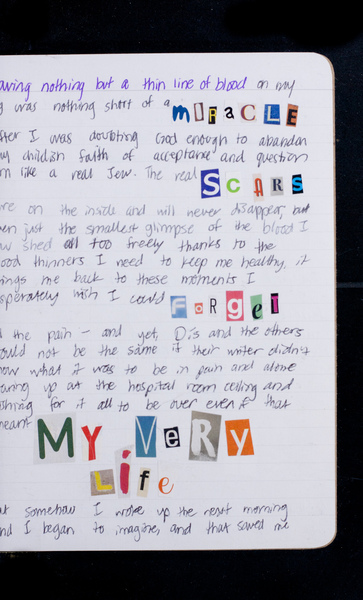 aving nothing but a thin line of blood on my
g was nothing short of a MIRACLE
fter I was doubting God enough to abandon
my childish faith of acceptance and question
m like a real Jew. The real SCARS
are on the inside and will never disappear, but
en just the smallest glimpse of the blood I
ow shed all too freely thanks to the
ood thinners I need to keep me healthy, it
ings me back to these moments I
sperately wish I could Forget
d the pain – and yet, Dis and the others
ould not be the same if their writer didn't
now what it was to be in pain and alone
taring up at the hospital room ceiling and
shing for it all to be over even if that
meant MY VeRY
Life
ut somehow I woke up the next morning
and I began to imagine, and that saved me